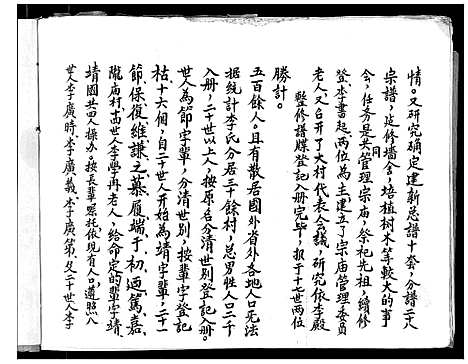 情。又研究确定建新总谱十套，分谱二十八
宗谱，延修墙舍，培植树木等较大的事
今，任务是共同管理宗庙，祭祀先祖，续修
登、李书起两位为主建立了宗庙管理委员
老人又召开了大村代表会议，研究依李殿
整修谱牒登记入册完毕，报于十七世两位
勝計。
五百餘人。且有散居国外省外各地人口无法
据统计李氏分居三十餘村，总男性人口二千
入册，二十世以上人，按原名分清世别登记入册。
世人为節字輩，分清世别，按輩字登记
枯十六個字，自二十世人开始为靖字輩，二十
節、保復、維謙之慕、履端于初、迺篤嘉、
隴庙村，高世人李學冉老人，给命定的輩字靖、
靖國共四人操办。按長輩嘱托依現有人口，遵照八
世人李廣時、李廣義、李廣第、及二十世人李